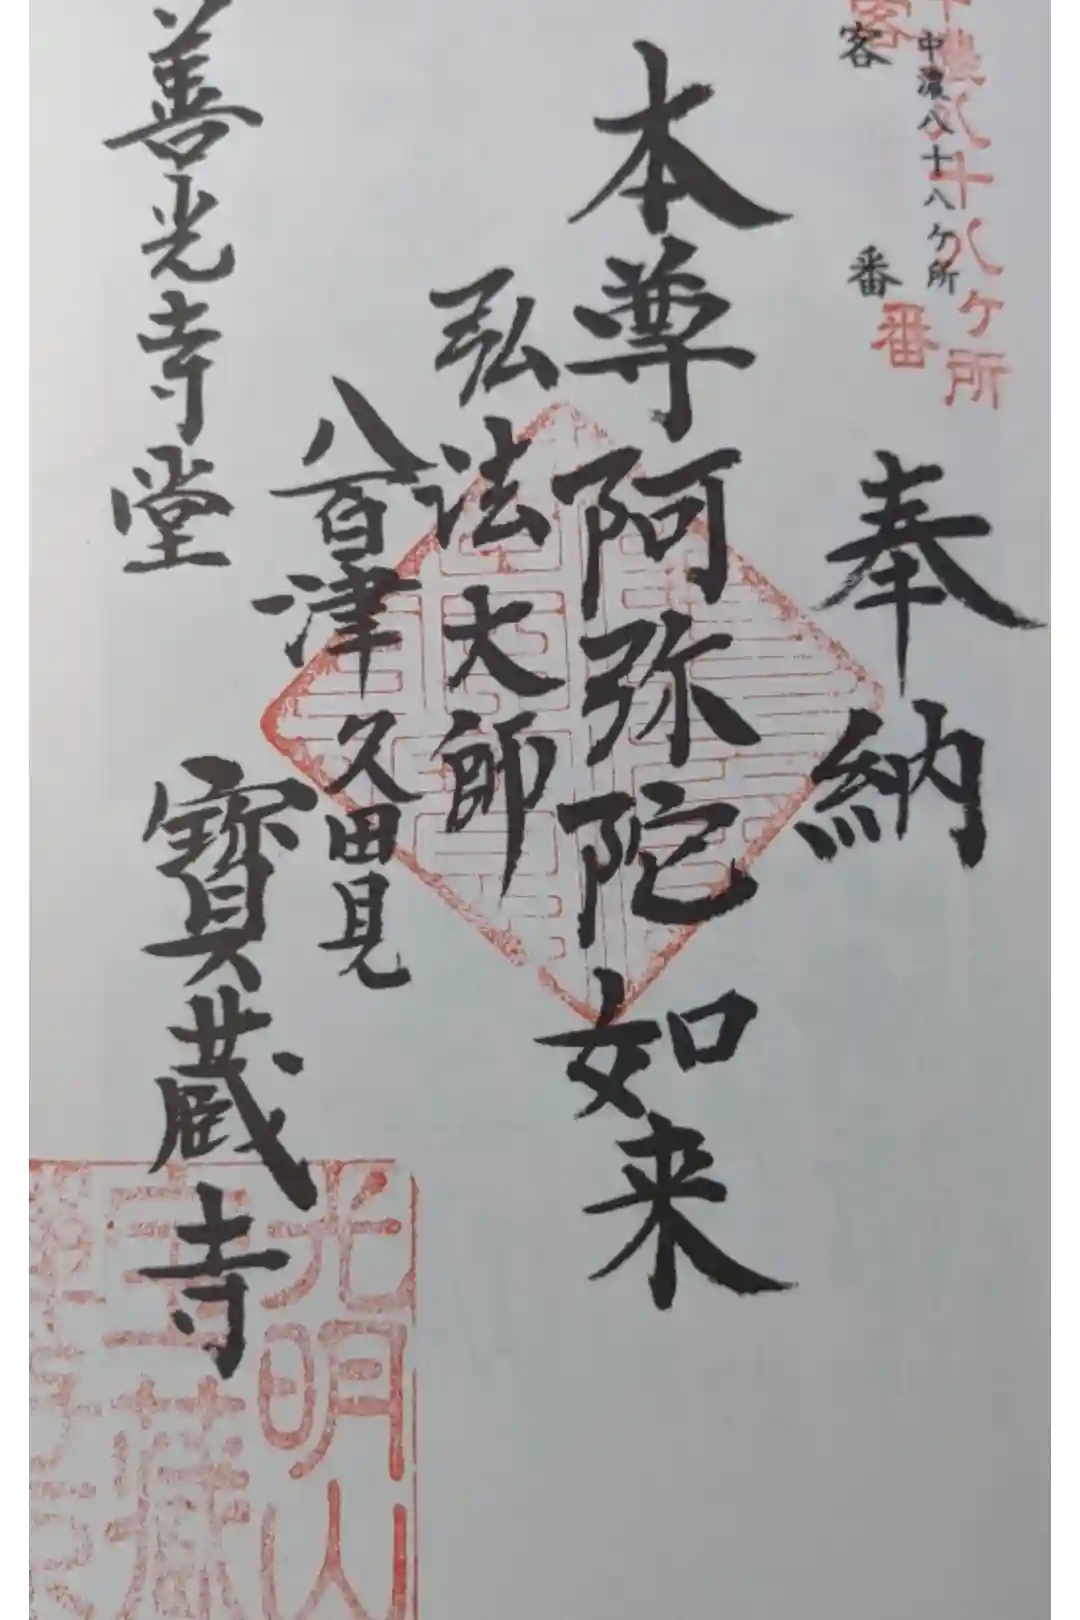 中濃八十八ケ所
客 番
中濃八十八ヶ所
客 番
奉納
本尊阿弥陀如来
弘法大師
八百津久田見
善光寺堂 寳蔵寺
光明山